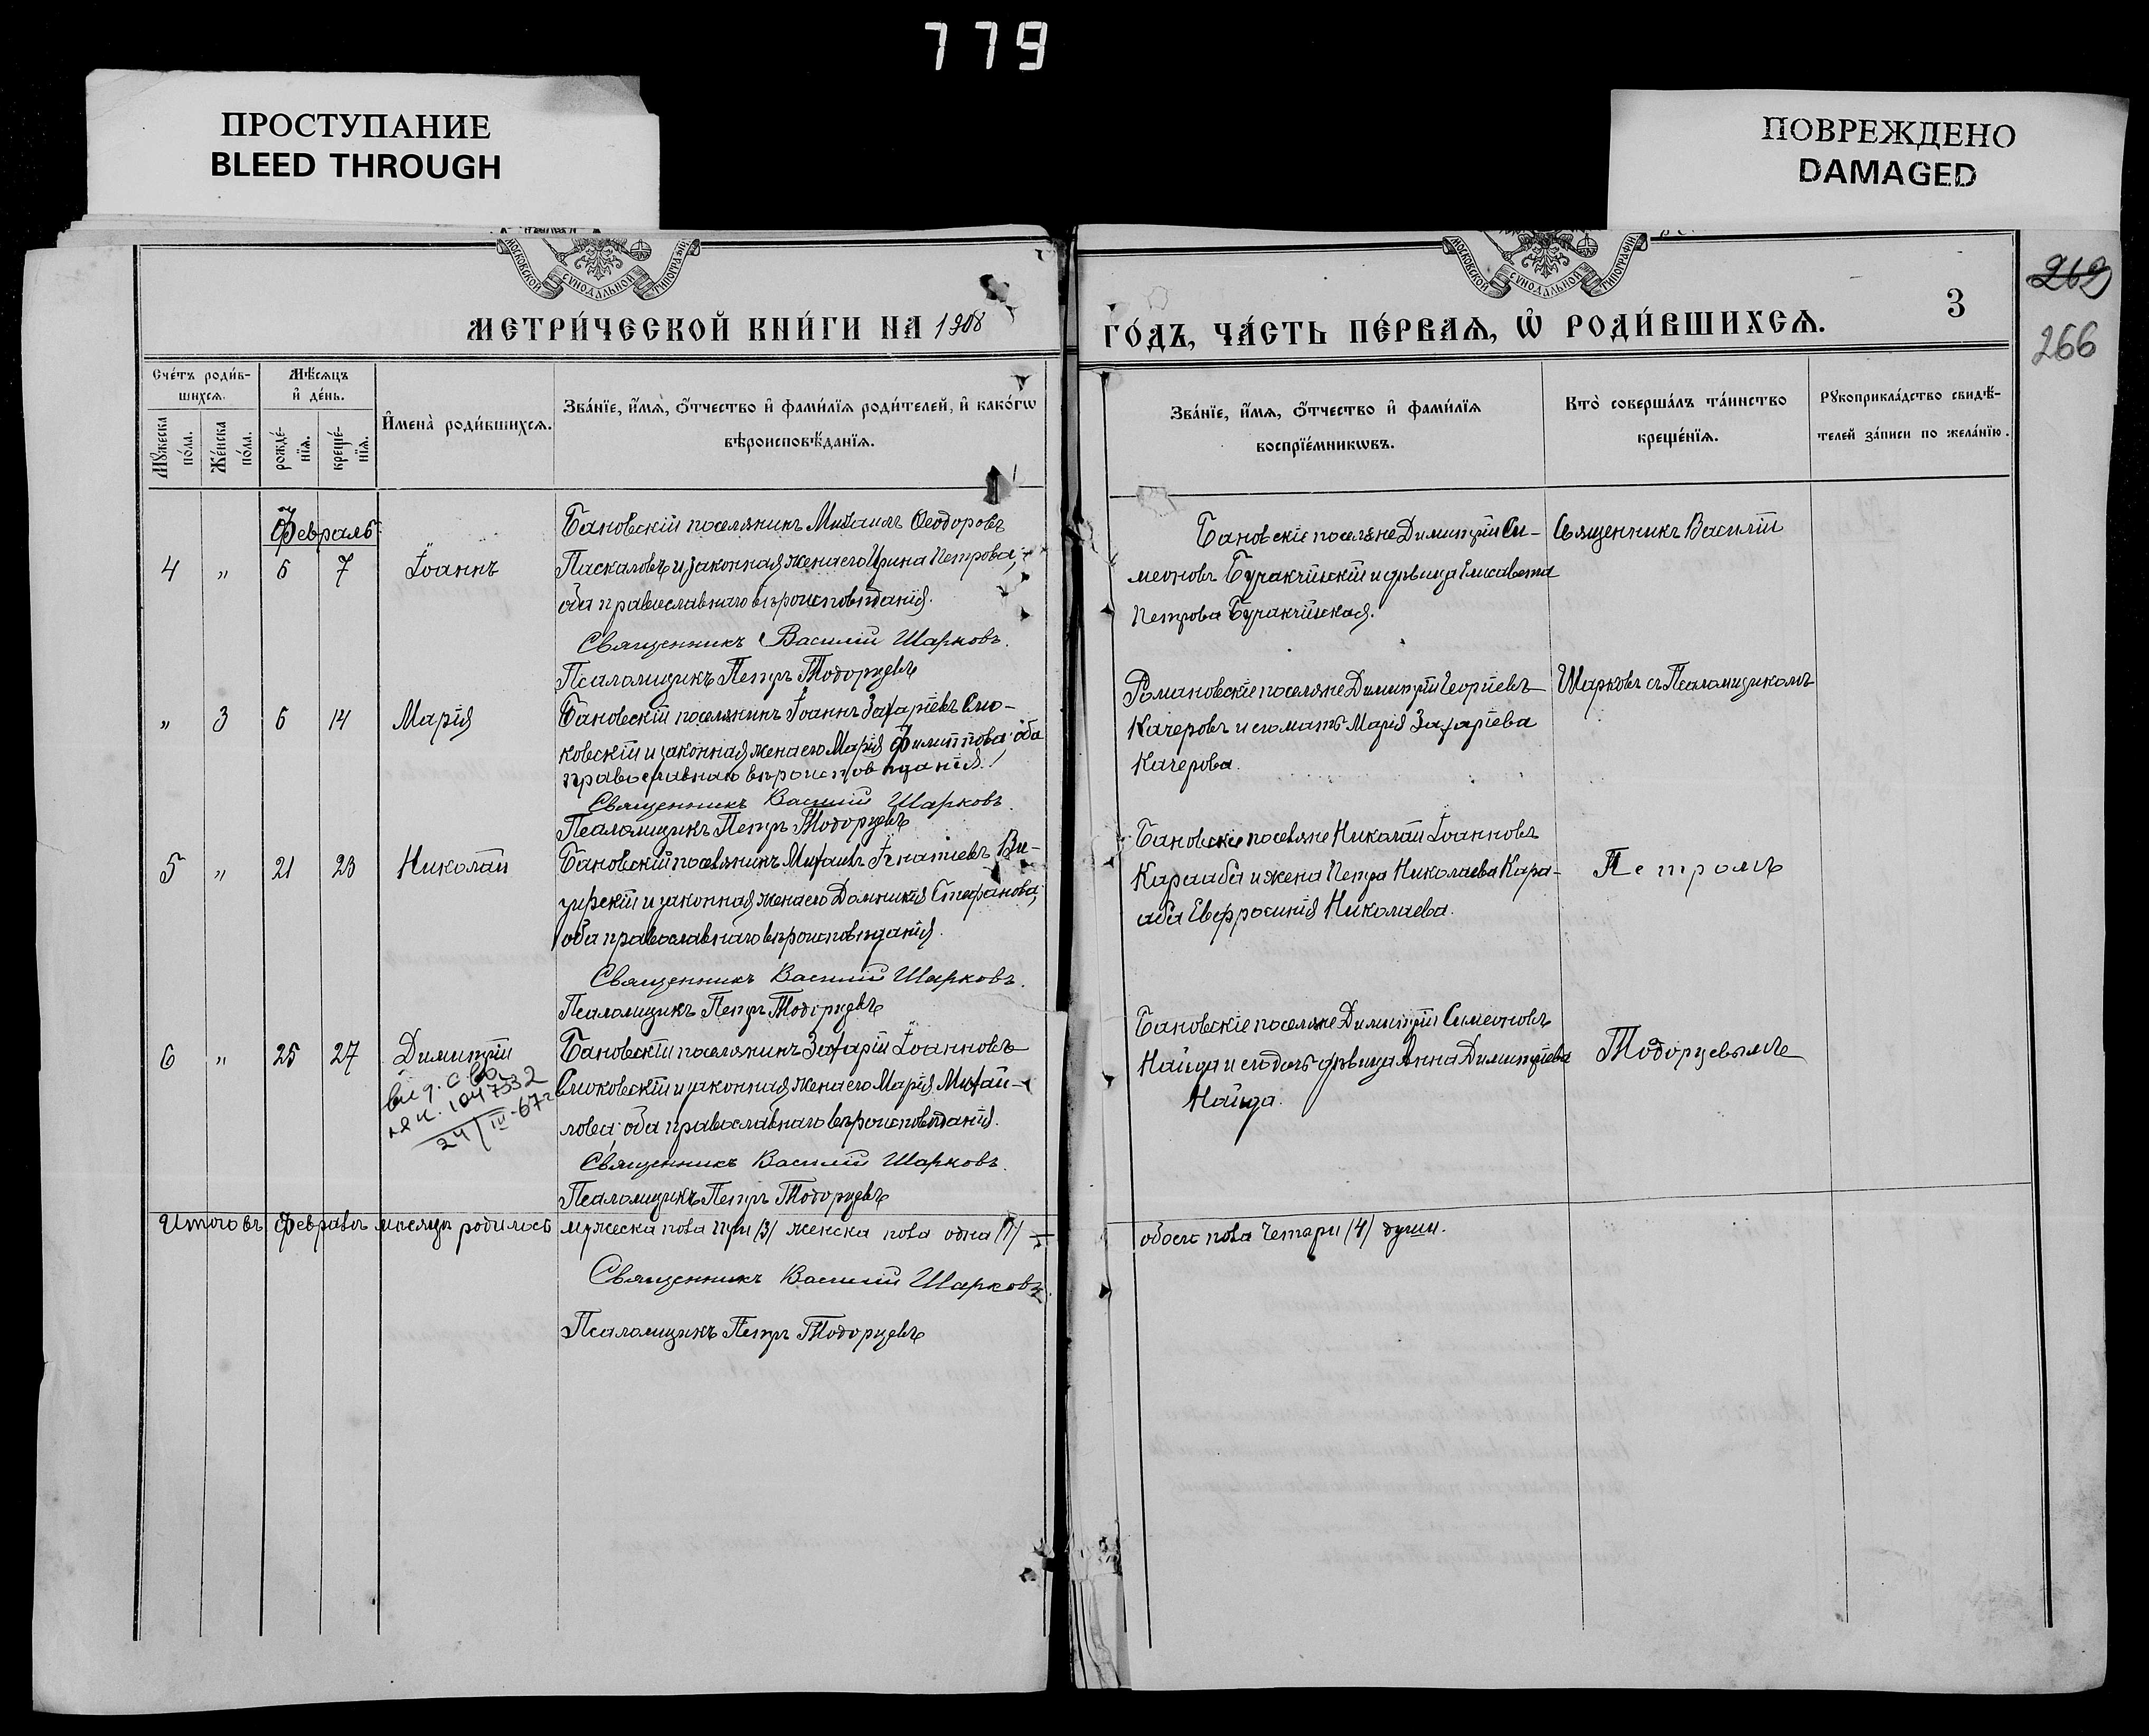 779
ПРОСТУПАНИЕ
BLEED THROUGH
ПОВРЕЖДЕНО
DAMAGED
МОСКОВСКОЙ СУНОДАЛЬНОЙ ТИПОГРАФІИ
МОСКОВСКОЙ СУНОДАЛЬНОЙ ТИПОГРАФІИ
МЕТРИ́ЧЕСКОЙ КНИ́ГИ НА 1908
ГО́ДЪ, ЧА́СТЬ ПЕ́РВАѦ, Ѡ҆ РОДИ́ВШИХСѦ.
3
269
266
Сче́тъ роди́в-
шихсѧ.
Мѣ́сяцъ
и҆ де́нь.
Мꙋ́жеска
по́ла.
Же́нска
по́ла.
рожде́-
нїѧ.
креще́-
нїѧ.
И҆мена̀ роди́вшихсѧ.
Зва́нїе, и҆́мѧ, ѻ҆́тчество и҆ фами́лїѧ роди́телей, и҆ како́гѡ
вѣроисповѣ́данїѧ.
Зва́нїе, и҆́мѧ, ѻ҆́тчество и҆ фами́лїѧ
воспрїе́мникѡвъ.
Кто̀ соверша́лъ та́инство
креще́нїѧ.
Рꙋкоприкла́дство свидѣ́-
телей за́писи по жела́нїю.
Февраль
4 „ 6 7 Іоаннъ
Бановскій поселянинъ Михаилъ Ѳеодоровъ
Паскаловъ и законная жена его Ирина Петрова,
оба православнаго вѣроисповѣданія.
Священникъ Василій Шарковъ.
Псаломщикъ Петръ Тодорцевъ
Бановскіе поселяне Димитрій Си-
меоновъ Буракчійскій и дѣвица Елисавета
Петрова Буракчійская.
Священникъ Василій
„ 3 6 14 Марія
Бановскій поселянинъ Іоаннъ Захаріевъ Сло-
ковскій и законная жена его Марія Филиппова, оба
православнаго вѣроисповѣданія.
Священникъ Василій Шарковъ.
Псаломщикъ Петръ Тодорцевъ
Романовскіе поселяне Димитрій Георгіевъ
Качеровъ и его мать Марія Захаріева
Качерова.
Шарковъ съ Псаломщикомъ
5 „ 21 23 Николай
Бановскій поселянинъ Михаилъ Игнатіевъ Ви-
зирскій и законная жена его Домникія Стефанова,
оба православнаго вѣроисповѣданія.
Священникъ Василій Шарковъ.
Псаломщикъ Петръ Тодорцевъ
Бановскіе поселяне Николай Іоанновъ
Карааба и жена Петра Николаева Кара-
аба Евфросинія Николаева.
Петромъ
6 „ 25 27 Димитрій
выд. свид.
104732
24/III-67г
Бановскій поселянинъ Захарій Іоанновъ
Слоковскій и законная жена его Марія Михай-
лова, оба православнаго вѣроисповѣданія.
Священникъ Василій Шарковъ.
Псаломщикъ Петръ Тодорцевъ
Бановскіе поселяне Димитрій Симеоновъ
Найда и его дочь дѣвица Анна Димитріева
Найда.
Тодорцевымъ
Итого въ Февралѣ мѣсяцѣ родилось мужеска пола три /3/ женска пола одна /1/
обоего пола Четыри /4/ души.
Священникъ Василій Шарковъ.
Псаломщикъ Петръ Тодорцевъ